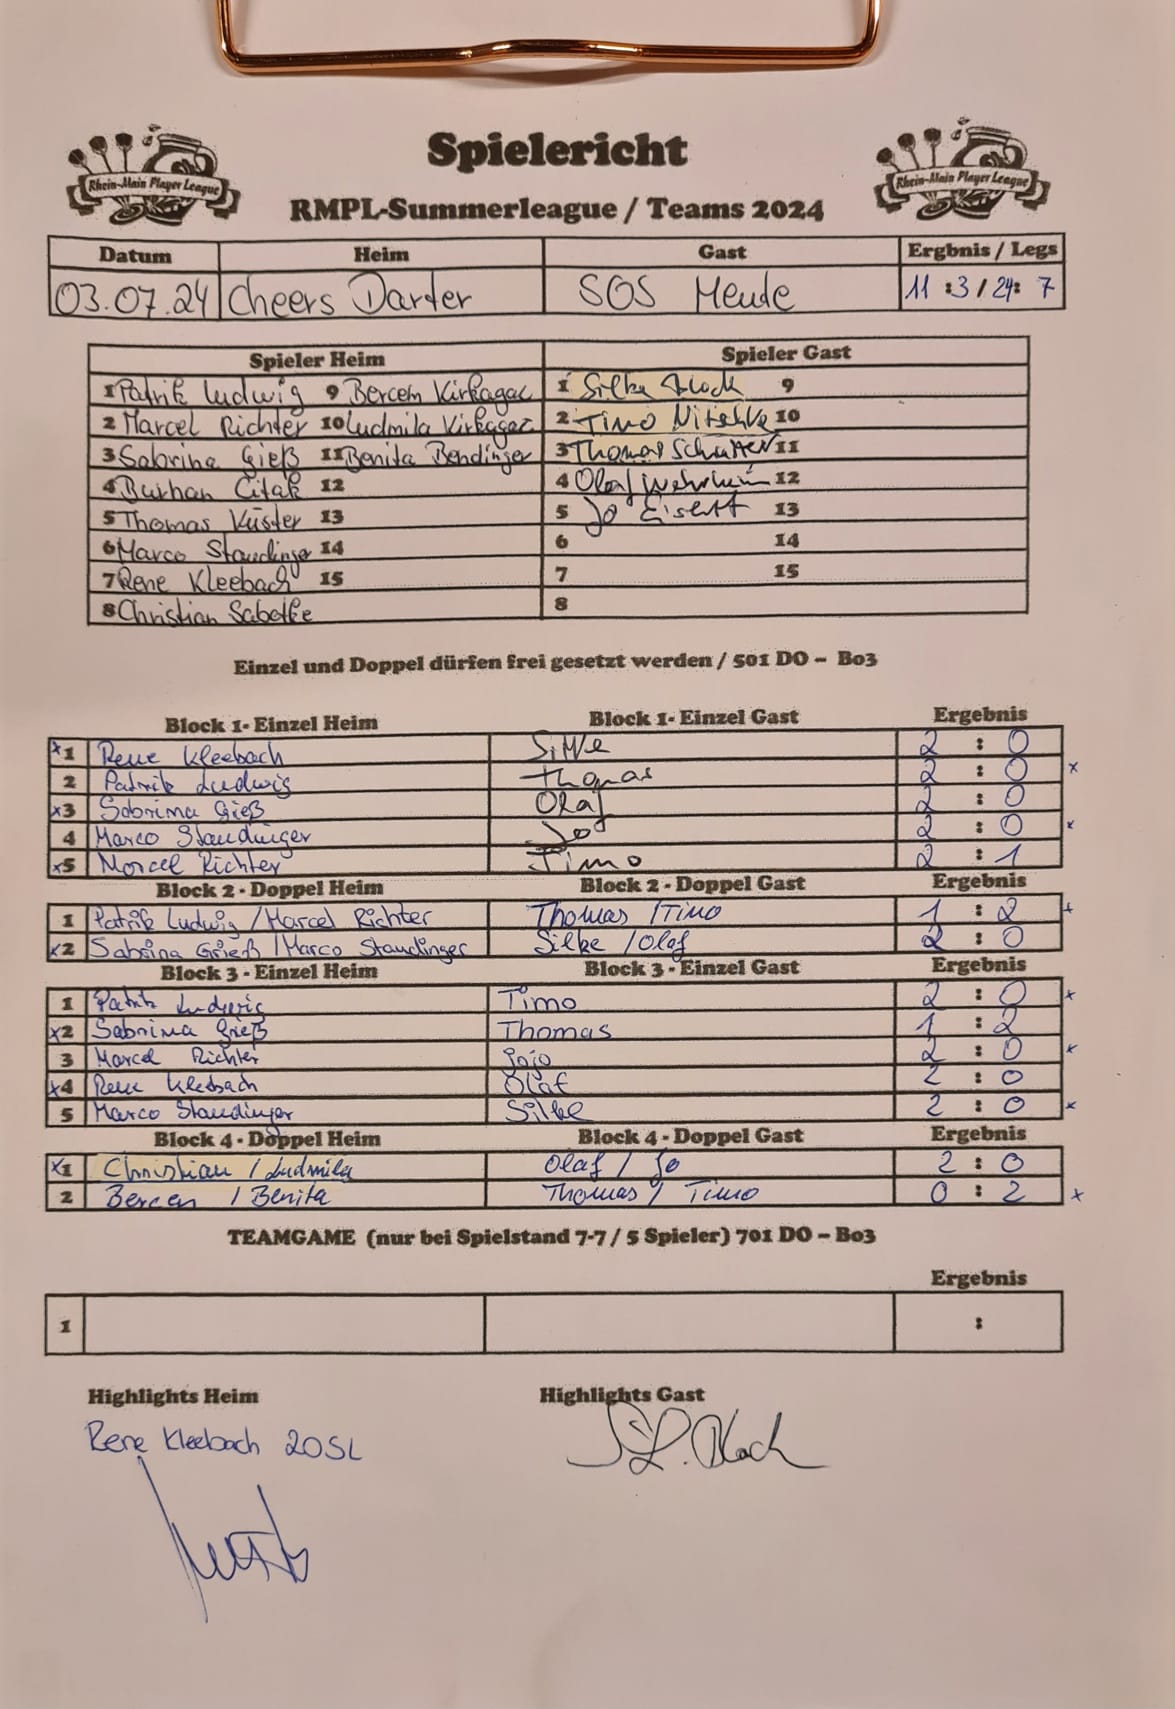 Rhein-Main Player League
Rhein-Main Player League
Spielericht
RMPL-Summerleague / Teams 2024
Datum Heim Gast Ergbnis / Legs
03.07.24 Cheers Darter SOS Meute 11 :3 / 24: 7
Spieler Heim Spieler Gast
1 Patrik Ludwig 9 Bercem Kirkagac 1 Silke Block 9
2 Marcel Richter 10 Ludmila Kirkagac 2 Timo Nitschke 10
3 Sabrina Gieß 11 Benita Bendinger 3 Thomas 11
4 Burhan Citak 12 4 Olaf Wehrheim 12
5 Thomas Küster 13 5 Jo 13
6 Marco Staudinger 14 6 14
7 Rene Kleebach 15 7 15
8 Christian Sabotke 8
Einzel und Doppel dürfen frei gesetzt werden / 501 DO – Bo3
Block 1- Einzel Heim Block 1- Einzel Gast Ergebnis
x1 Rene Kleebach Silke 2 : 0
2 Patrik Ludwig Thomas 2 : 0 x
x3 Sabrina Gieß Olaf 2 : 0
4 Marco Staudinger Jo 2 : 0 x
x5 Marcel Richter Timo 2 : 1
Block 2 - Doppel Heim Block 2 - Doppel Gast Ergebnis
1 Patrik Ludwig / Marcel Richter Thomas / Timo 1 : 2 x
x2 Sabrina Grieß / Marco Staudinger Silke / Olaf 2 : 0
Block 3 - Einzel Heim Block 3 - Einzel Gast Ergebnis
1 Patrik Ludwig Timo 2 : 0 x
x2 Sabrina Grieß Thomas 1 : 2
3 Marcel Richter Jojo 2 : 0 x
x4 Rene Kleebach Olaf 2 : 0
5 Marco Staudinger Silke 2 : 0 x
Block 4 - Doppel Heim Block 4 - Doppel Gast Ergebnis
x1 Christian / Ludmila Olaf / Jo 2 : 0
2 Bercem / Benita Thomas / Timo 0 : 2 x
TEAMGAME (nur bei Spielstand 7-7 / 5 Spieler) 701 DO – Bo3
Ergebnis
1 :
Highlights Heim Highlights Gast
Rene Kleebach 20SL S. Block